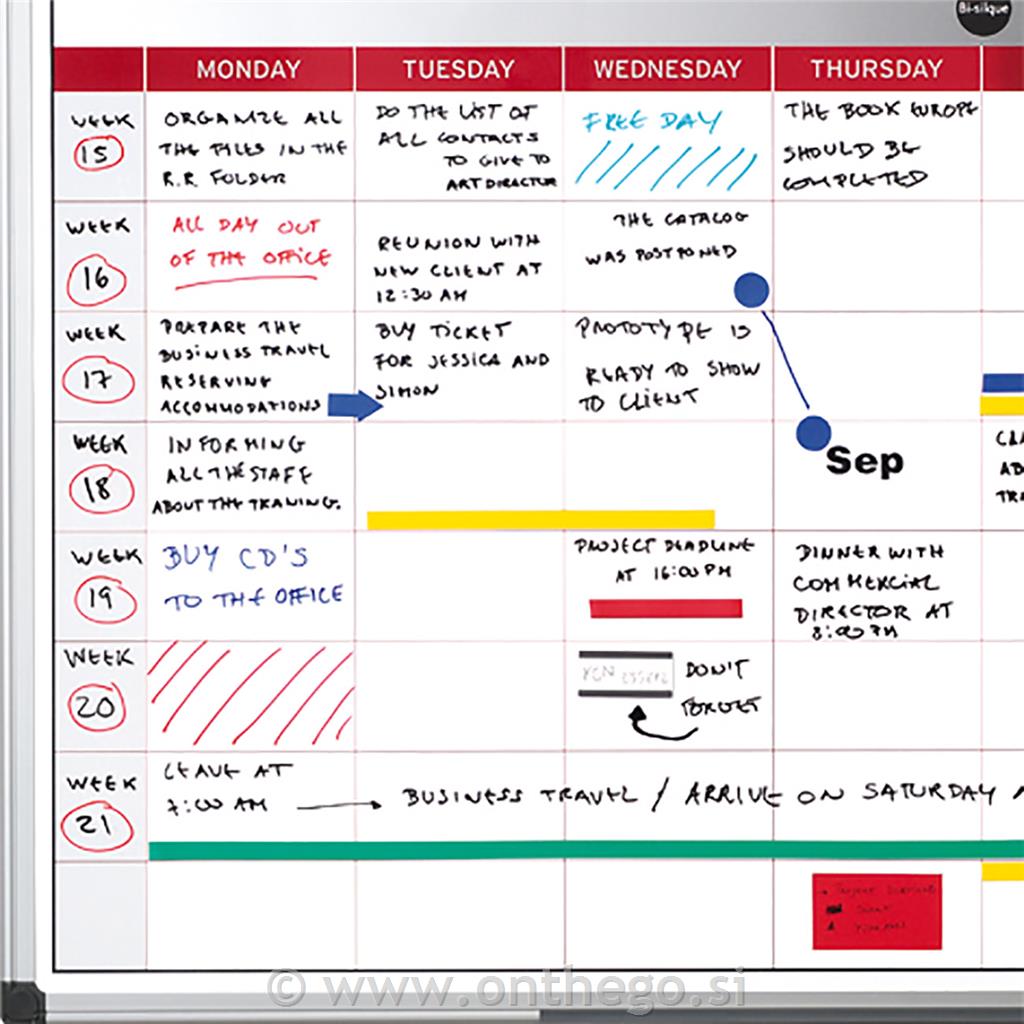 Bi-silque
MONDAY TUESDAY WEDNESDAY THURSDAY
WEEK
15
ORGANIZE ALL
THE FILES IN THE
R.R. FOLDER
DO THE LIST OF
ALL CONTACTS
TO GIVE TO
ART DIRECTOR
FREE DAY
THE BOOK EUROPE
SHOULD BE
COMPLETED
WEEK
16
ALL DAY OUT
OF THE OFFICE
REUNION WITH
NEW CLIENT AT
12:30 AM
THE CATALOG
WAS POSTPONED
WEEK
17
PREPARE THE
BUSINESS TRAVEL
RESERVING
ACCOMMODATIONS
BUY TICKET
FOR JESSICA AND
SIMON
PROTOTYPE IS
READY TO SHOW
TO CLIENT
WEEK
18
INFORMING
ALL THE STAFF
ABOUT THE TRANING.
Sep
WEEK
19
BUY CD'S
TO THE OFFICE
PROJECT DEADLINE
AT 16:00 PM
DINNER WITH
COMMERCIAL
DIRECTOR AT
8:00 PM
WEEK
20
DON'T
FORGET
WEEK
21
LEAVE AT
7:00 AM
BUSINESS TRAVEL / ARRIVE ON SATURDAY
© www.onthego.si